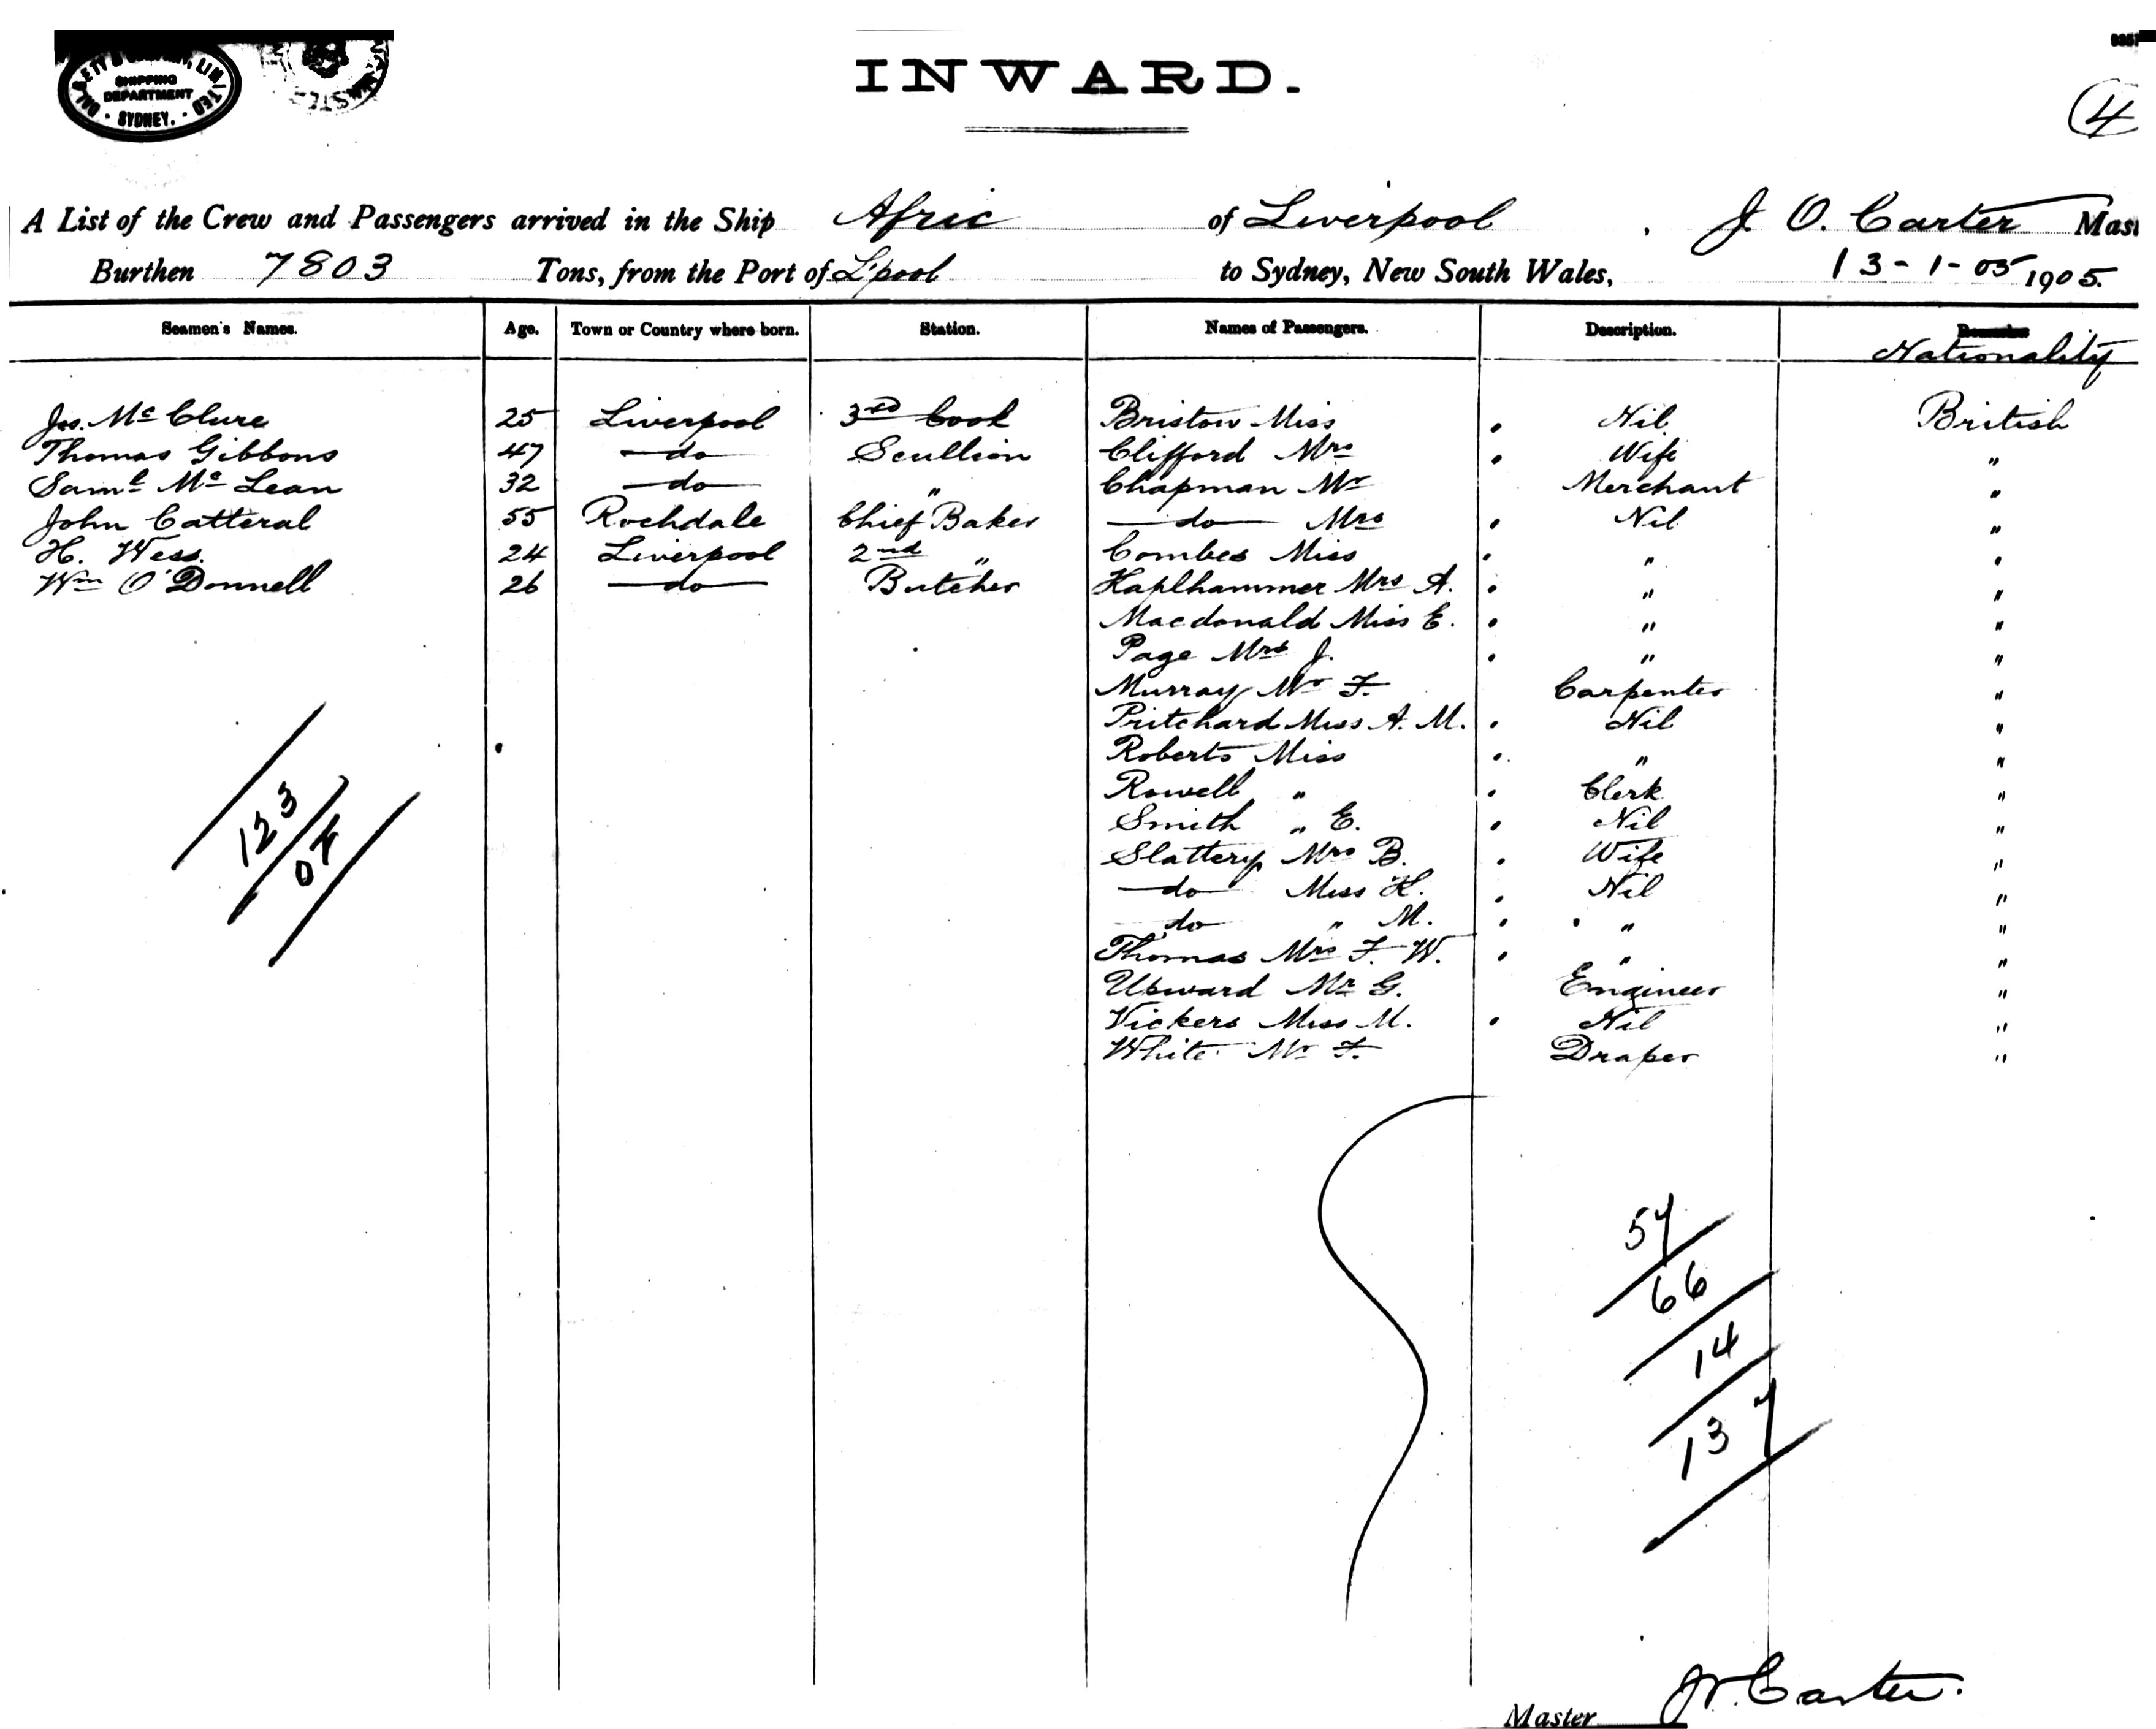 DALGETY & COMPANY, LIMITED
SHIPPING
DEPARTMENT
SYDNEY.
INWARD.
4
A List of the Crew and Passengers arrived in the Ship Afric of Liverpool, J. O. Carter Mas
Burthen 7803 Tons, from the Port of L'pool to Sydney, New South Wales, 13-1-05 1905.
Seamen's Names. Age. Town or Country where born. Station. Names of Passengers. Description. Nationality
Jos. McClure 25 Liverpool 3rd Cook Bristow Miss Nil British
Thomas Gibbons 47 do Scullion Clifford Mrs Wife "
Saml McLean 32 do " Chapman Mr Merchant "
John Catteral 55 Rochdale Chief Baker do Mrs Nil "
H. Wess. 24 Liverpool 2nd " Combes Miss " "
Wm O'Donnell 26 do Butcher Haplhammer Mrs A. " "
Macdonald Miss E. " "
Page Mrs J. " "
Murray Mr F. Carpenter "
Pritchard Miss A. M. Nil "
Roberts Miss " "
Rowell " Clerk "
Smith " E. Nil "
Slattery Mrs B. Wife "
do Miss H. Nil "
do " M. " "
Thomas Mrs F. W. " "
Upward Mr G. Engineer "
Vickers Miss M. Nil "
White Mr F. Draper "
123
OK
57
66
14
137
Master J. O. Carter.